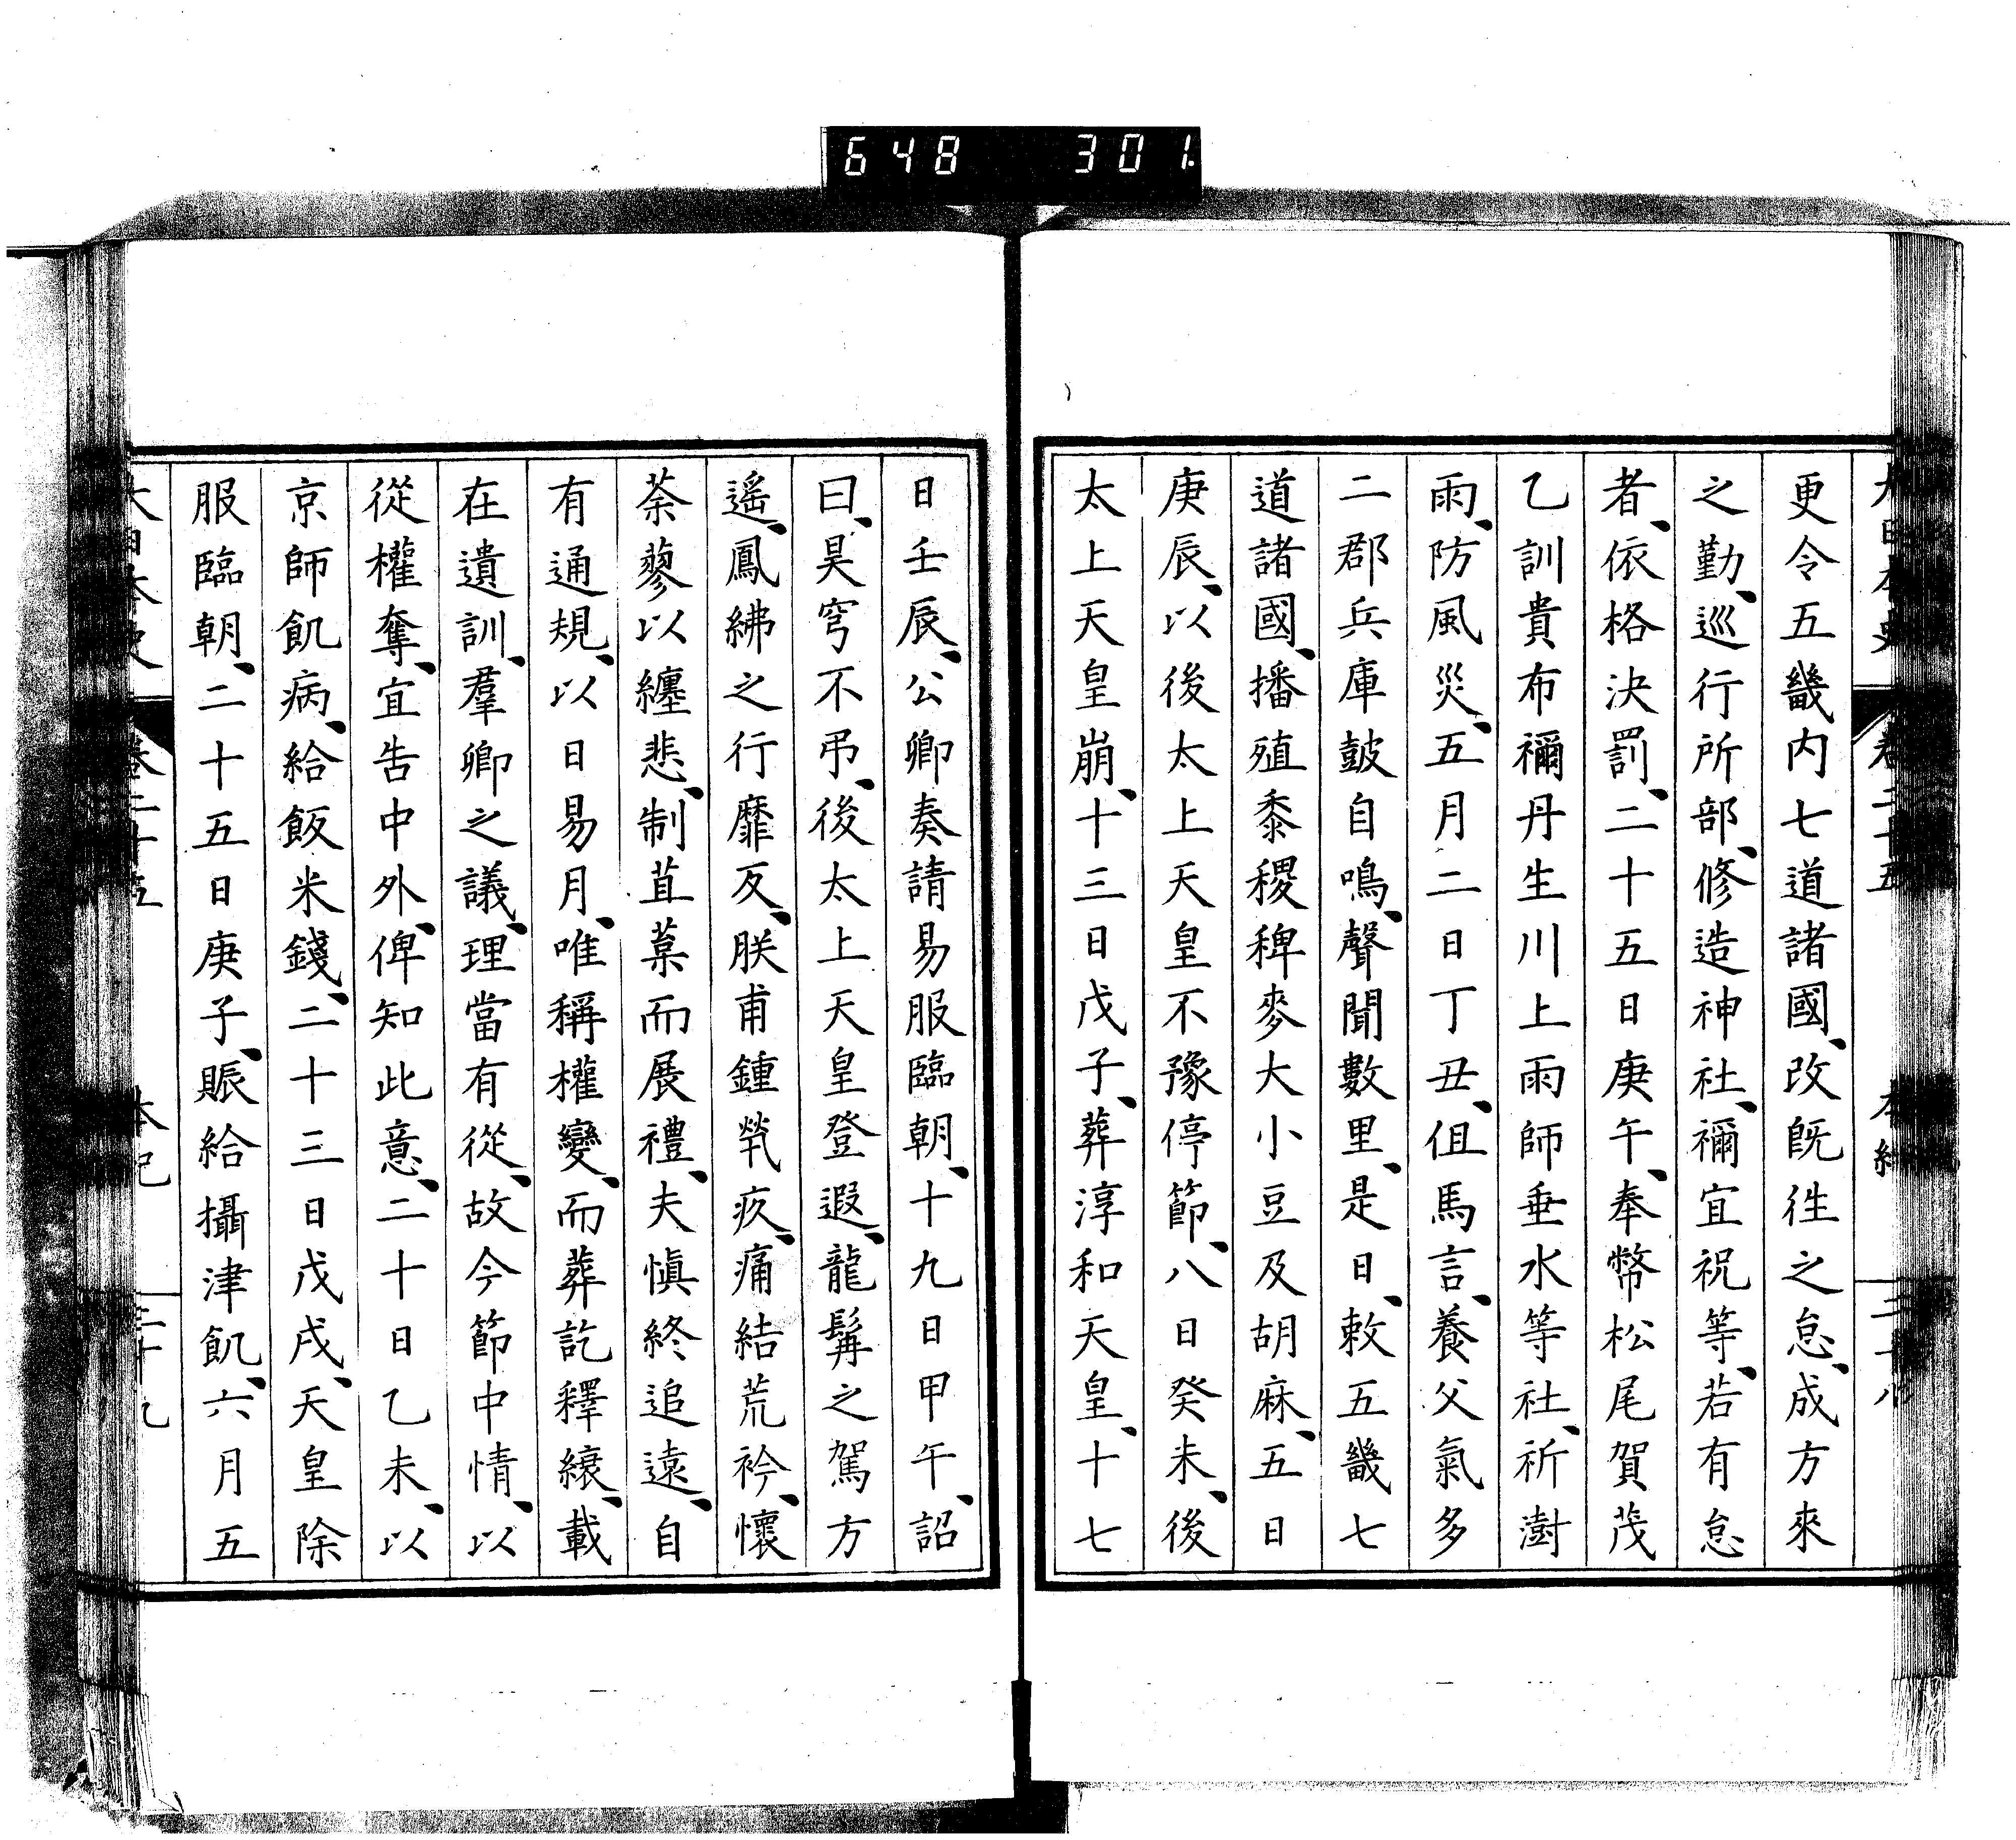 648 301.
更令五畿内七道諸國、改既徃之怠、成方來
之勤、巡行所部、修造神社、禰宜祝等、若有怠
者、依格決罰、二十五日庚午、奉幣松尾賀茂
乙訓貴布禰丹生川上雨師垂水等社、祈澍
雨、防風災、五月二日丁丑、但馬言、養父氣多
二郡兵庫鼓自鳴、聲聞數里、是日、敕五畿七
道諸國、播殖黍稷稗麥大小豆及胡麻、五日
庚辰、以後太上天皇不豫停節、八日癸未、後
太上天皇崩、十三日戊子、葬淳和天皇、十七
日壬辰、公卿奏請易服臨朝、十九日甲午、詔
曰、昊穹不弔、後太上天皇登遐、龍髯之駕方
遥、鳳紼之行靡反、朕甫鍾煢疚、痛結荒衿、懷
荼蓼以纏悲、制苴菒而展禮、夫愼終追遠、自
有通規、以日易月、唯稱權變、而葬訖釋縗、載
在遺訓、羣卿之議、理當有從、故今節中情、以
從權奪、宜告中外、俾知此意、二十日乙未、以
京師飢病、給飯米錢、二十三日戊戌、天皇除
服臨朝、二十五日庚子、賑給攝津飢、六月五